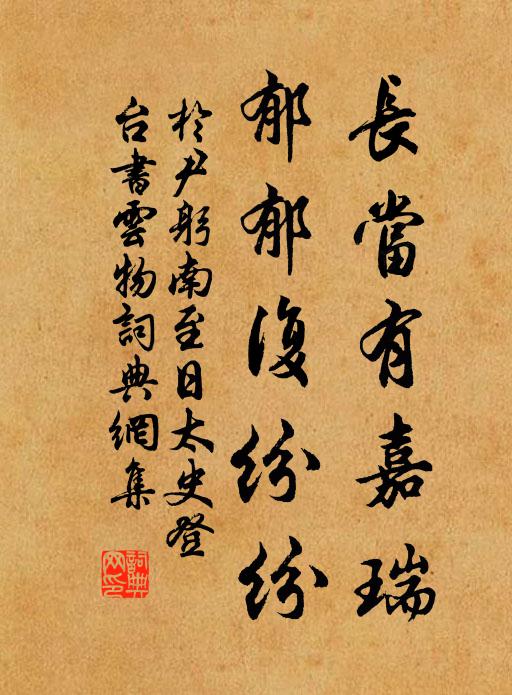 長當有嘉瑞
郁郁復紛紛
於尹躬南至日太史登
台書雲物詞典網集
詞典網印